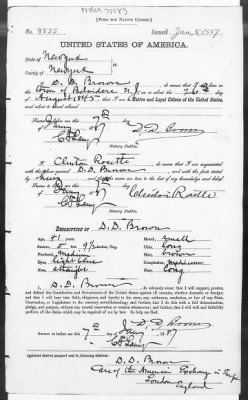 [FORM FOR NATIVE CITIZEN.]
No. 8855 Issued Jan. 8, 1887
UNITED STATES OF AMERICA.
State of New York
County of New York
I, D. D. Brown, do swear that I was born in the
town of Belvidere N. J. on the
August 1845, that I am a Native and Loyal Citizen of the United States,
and about to travel abroad
Sworn to before me, this 7th day
D. D. Brown
Notary Public.
I, Clinton Rosette, do swear that I am acquainted
with the above-named D. D. Brown and with the facts stated
by him, and that the same are true to the best of my knowledge and belief.
Sworn to before me, this
Clinton Rosette
Notary Public.
DESCRIPTION OF D. D. Brown
Age, 41 years. Mouth, small
Stature, 5 feet inches, Eng. Chin, long
Forehead, medium Hair, brown
Eyes, Complexion, medium
Nose, straight Face, long
I, D. D. Brown, do solemnly swear that I will support, protect,
and defend the Constitution and Government of the United States against all enemies, whether domestic or foreign;
and that I will bear true faith, allegiance, and loyalty to the same, any ordinance, resolution, or law of any State,
Convention, or Legislature to the contrary notwithstanding; and further, that I do this with a full determination,
pledge, and purpose, without any mental reservation or evasion whatsoever; and further, that I will well and faithfully
perform all the duties which may be required of me by law. So help me God.
D. D. Brown
Sworn to before me, this 7th day of 1887
Notary Public.
Applicant desires passport sent to following address:
D. D. Brown
Care of the American Exchange in Europe
London
England